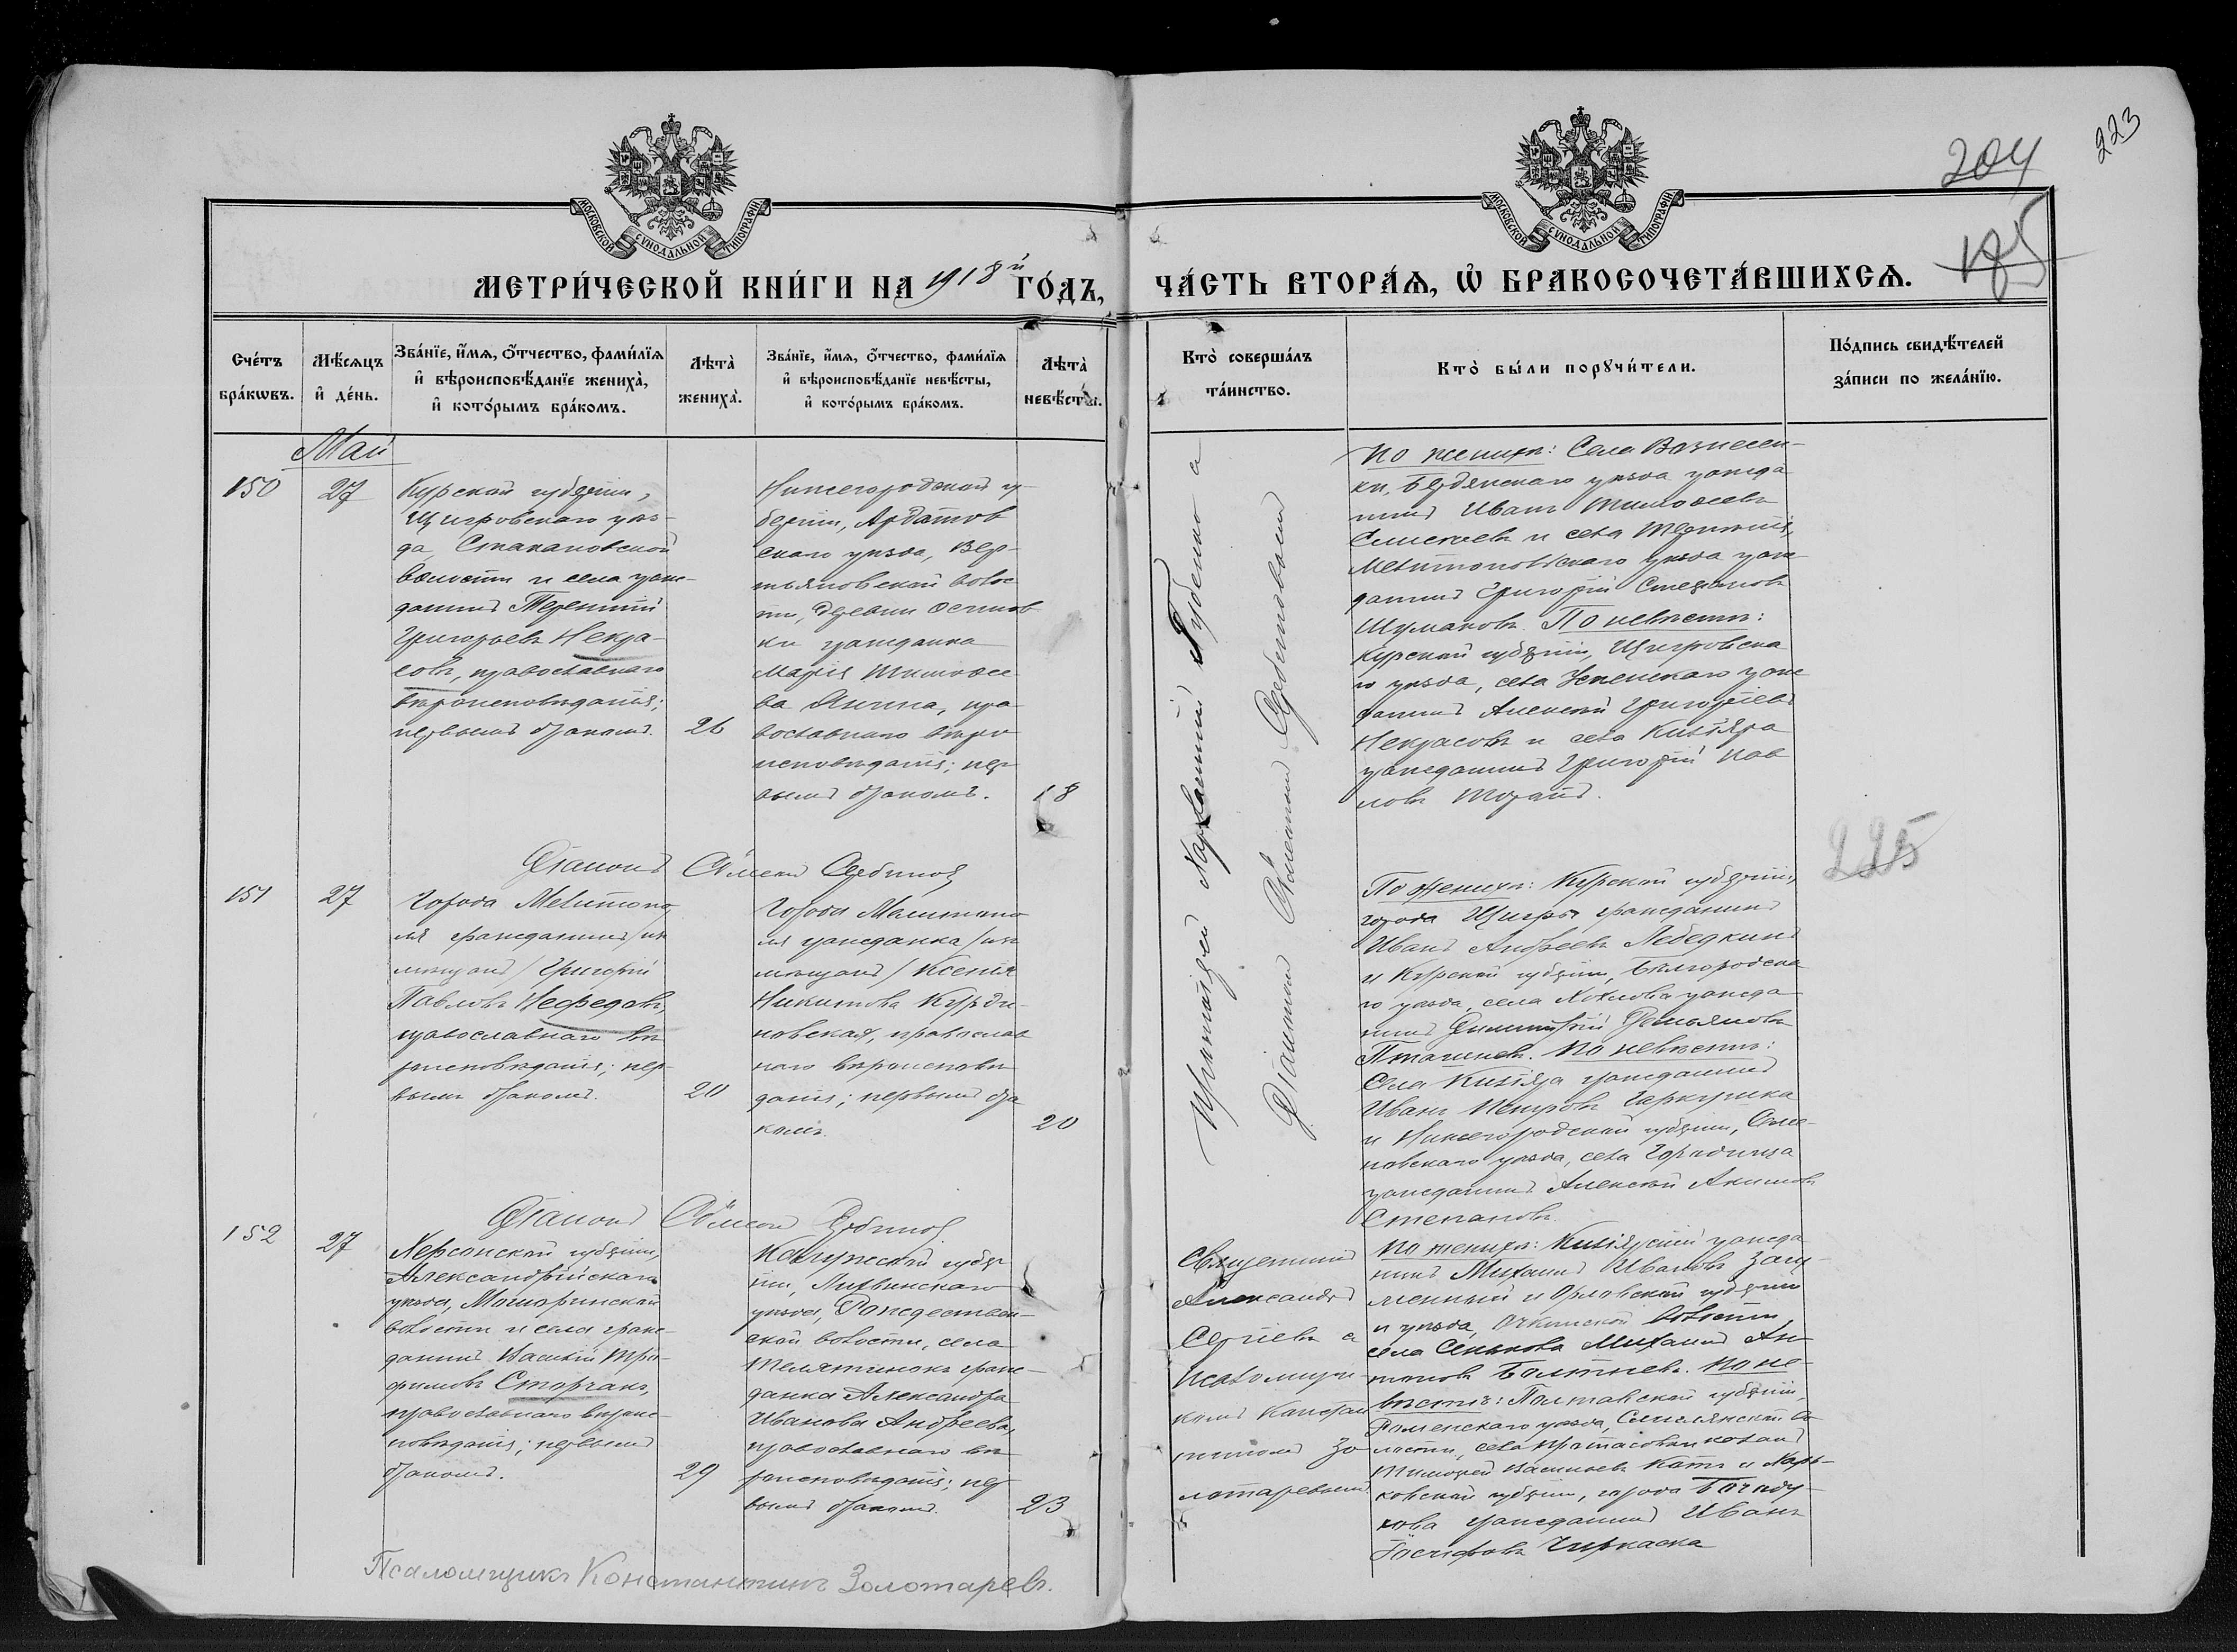 204
223
185
МОСКОВСКОЙ СѴНОДАЛЬНОЙ ТИПОГРАФІИ
МОСКОВСКОЙ СѴНОДАЛЬНОЙ ТИПОГРАФІИ
МЕТРИ́ЧЕСКОЙ КНИ́ГИ НА 1918й ГО́ДЪ,
ЧА́СТЬ ВТОРА́Ѧ, Ѡ҆ БРАКОСОЧЕТА́ВШИХСѦ.
Сче́тъ бра́кѡвъ.
Мѣ́сѧцъ и҆ де́нь.
Зва́нїе, и҆́мѧ, ѻ҆́тчество, фамі́лїѧ
и҆ вѣроисповѣ́данїе жениха̀,
и҆ кото́рымъ бра́комъ.
Лѣта̀ жениха̀.
Зва́нїе, и҆́мѧ, ѻ҆́тчество, фамі́лїѧ
и҆ вѣроисповѣ́данїе невѣ́сты,
и҆ кото́рымъ бра́комъ.
Лѣта̀ невѣ́сты.
Кто̀ соверша́лъ та́инство.
Кто̀ бы́ли порꙋчи́тели.
По́дпись свидѣ́телей за́писи по жела́нїю.
Май
150
27
Курской губерніи,
Щигровскаго уѣз-
да, Стакановской
волости и села граж-
данинъ Терентій
Григорьевъ Некра-
совъ, православнаго
вѣроисповѣданія;
первымъ бракомъ.
26
Нижегородской гу-
берніи, Ардатов
скаго уѣзда, Вер-
тьяновской волос
ти, деревни Осинов
ки гражданка
Марія Тимофее
ва Янина, пра
вославнаго вѣро
исповѣданія; пер
вымъ бракомъ.
18
Протоіерей Харлампій Губенко а
Діаконъ Симеонъ
По женихѣ: Села Вознесен-
ки, Бердянскаго уѣзда гражда
нинъ Иванъ Тимофеевъ
и села Терпѣнія,
Мелитопольскаго уѣзда граж
данинъ Григорій Стефановъ
Шумаковъ. По невѣстѣ:
Курской губерніи, Щигровска
го уѣзда, села Успенскаго граж
данинъ Алексѣй Григорьевъ
Некрасовъ и села Кизіяра
гражданинъ Григорій Пав
ловъ
Діаконъ Симеонъ
225
151
27
Города Мелитопо
ля гражданинъ /изъ
мѣщанъ/ Григорій
Павловъ Нефедовъ,
православнаго вѣ
роисповѣданія; пер-
вымъ бракомъ.
20
Города Мелитопо
ля гражданка /изъ
мѣщанъ/ Ксенія
Никитова Курди-
новская, православ
наго вѣроисповѣ
данія; первымъ бра
комъ.
20
По женихѣ: Курской губерніи,
города Щигры гражданинъ
Иванъ Андреевъ Лебедкинъ
и Курской губерніи, Бѣлгородска
го уѣзда, села Хохлова гражда
нинъ Димитрій Демьяновъ
По невѣстѣ:
Села Кизіяра гражданинъ
Иванъ Петровъ
и Нижегородской губерніи, Семе-
новскаго уѣзда, села Городища
гражданинъ Алексѣй Акимовъ
Степановъ.
Діаконъ Симеонъ
152
27
Херсонской губерніи,
Александрійскаго
уѣзда, Мошоринской
волости и села граж-
данинъ Василій Тро-
фимовъ Сторчакъ,
православнаго вѣроис-
повѣданія; первымъ
бракомъ.
29
Калужской губер
ніи, Лихвинскаго
уѣзда, Рождествен-
ской волости, села
Телятинокъ граж-
данка Александра
Иванова Андреева,
православнаго вѣ
роисповѣданія; пер
вымъ бракомъ.
23
Священникъ
Александръ
Сергіевъ с
псаломщи-
комъ Констан
тиномъ Зо
лотаревымъ
По женихѣ: Кизіярскій гражда
нинъ Михаилъ Ивановъ
и Орловской губерніи
и уѣзда, волости
села Сенькова Михаилъ Ан
тоновъ По не-
вѣстѣ: Полтавской губерніи,
Роменскаго уѣзда, во
лости, села Протасовки козакъ
Тимофей Васильевъ и Харь-
ковской губерніи, города Богоду-
хова гражданинъ Иванъ
Іосифовъ
Псаломщикъ Константинъ Золотаревъ.